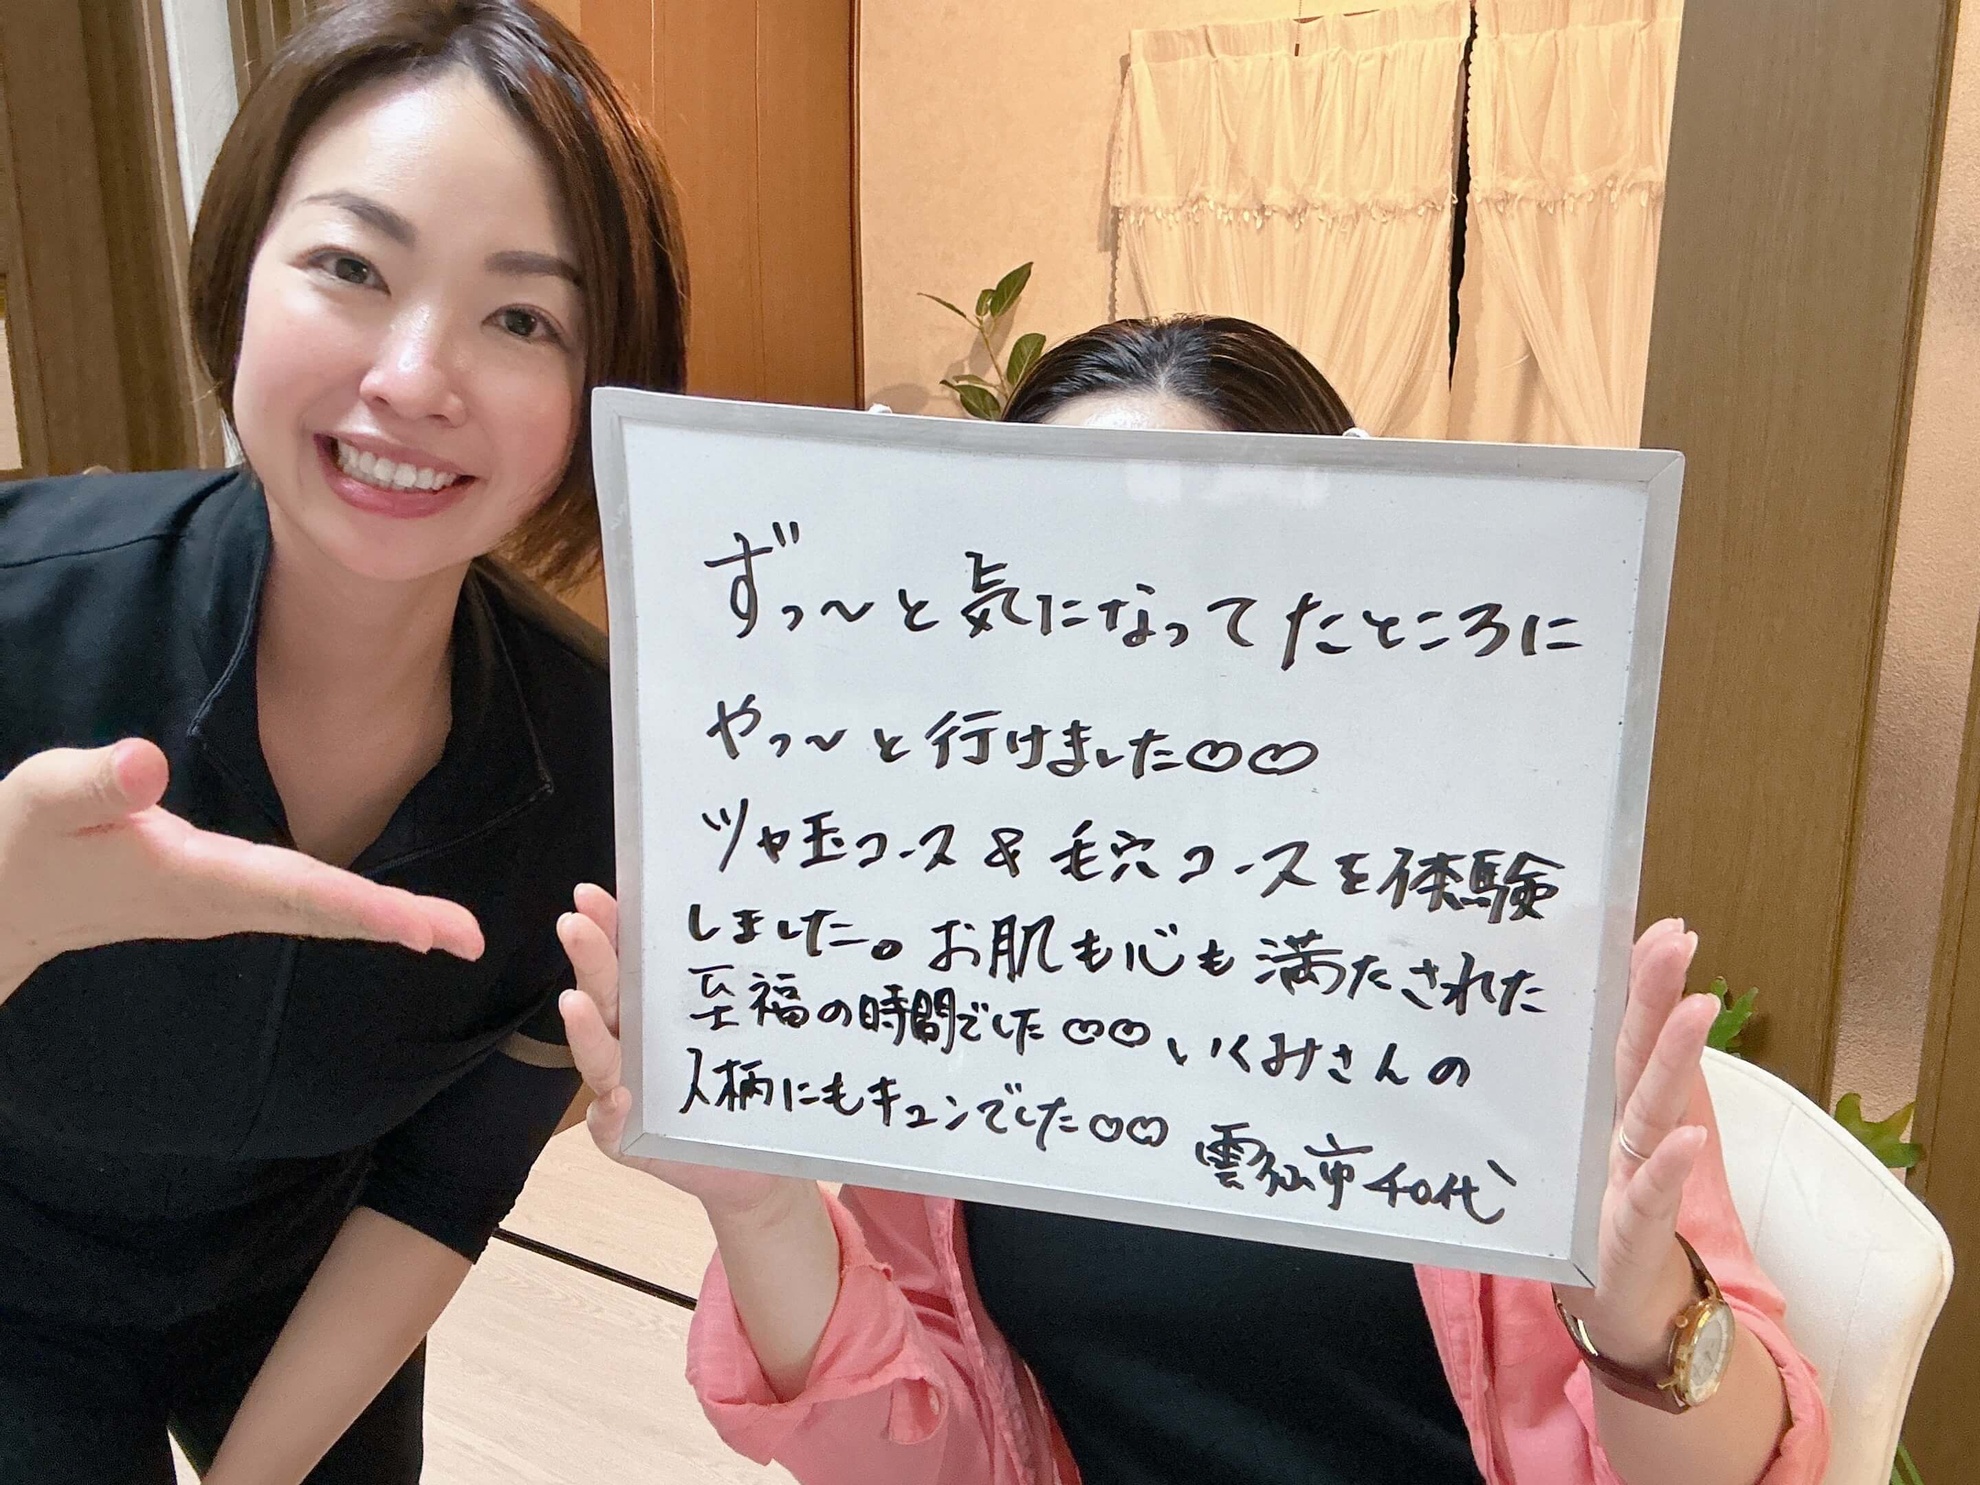 ずっ〜と気になってたところに
やっ〜と行けました♡♡
ツヤ玉コース & 毛穴コースを体験
しました。お肌も心も満たされた
至福の時間でした♡♡ いくみさんの
人柄にもキュンでした♡♡
雲仙市 40代